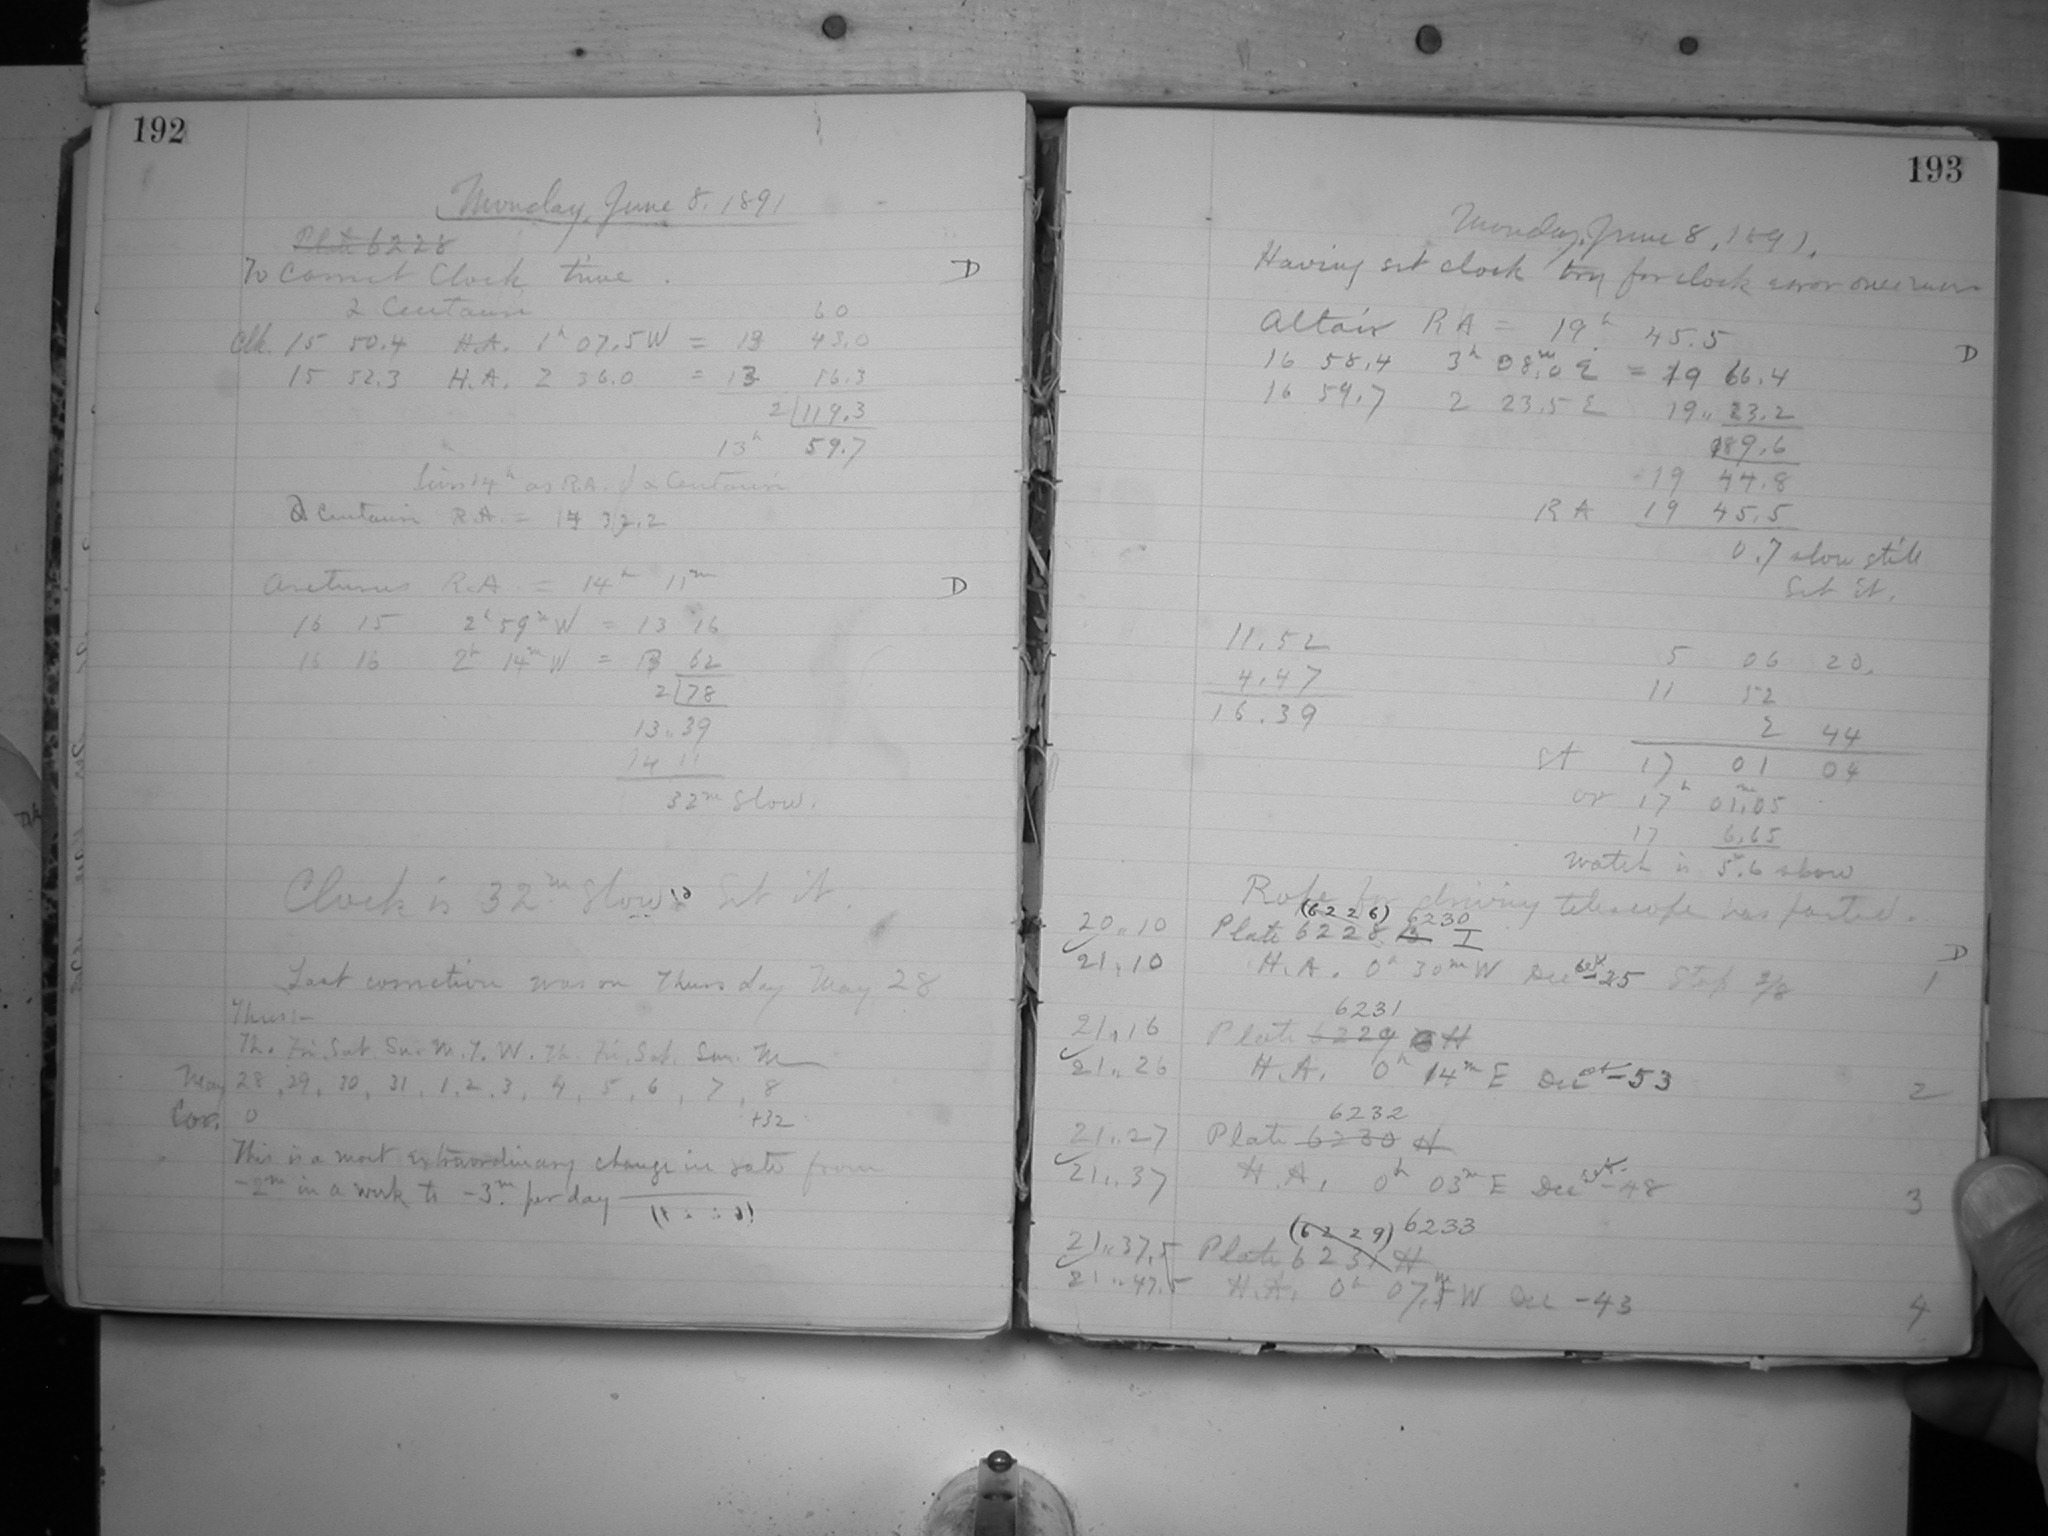 192
Monday, June 8. 1891
Plate 6228
To Correct Clock time.
D
2 Centauri 60
Clk. 15 50.4 H.A. 1h 07.5 W = 13 43.0
15 52.3 H.A. 2 36.0 = 13 16.3
2 119.3
13h 59.7
14h as R.A. of 2 Centauri
2 Centauri R.A. = 14 32.2
Arcturus R.A. = 14h 11m
D
16 15 2h 59m W = 13 16
16 16 2h 14m W = 13 62
2 78
13.. 39
14 11
32m Slow.
Clock is 32m Slow. Set it.
Last correction was on Thursday May 28
Thus:-
Th. Fri. Sat. Su. M. T. W. Th. Fri. Sat. Sun. M
May 28, 29, 30, 31, 1, 2, 3, 4, 5, 6, 7, 8
Cor. 0 +32
This is a most extraordinary change in rate from
-2m in a week to -3m per day
193
Monday, June 8, 1891.
Having set clock try for clock error once more
Altair RA = 19h 45.5
D
16 58.4 3h 08m.0 E = 19 66.4
16 59.7 2 23.5 E 19.. 23.2
89.6
19 44.8
RA 19 45.5
0.7 slow still
Set it.
11.52
4.47
16.39
5 06 20.
11 52
2 44
St 17 01 04
or 17h 01m.05
17 6.65
Watch is 5m.6 slow
Rope for driving telescope has parted.
(6226) 6230
20..10 Plate 6228 B I
D
21..10 H.A. 0h 30m W Dec -25 Stop 2/8
1
6231
21..16 Plate 6229 H
21..26 H.A. 0h 14m E Dec -53
2
6232
21..27 Plate 6230 H
21..37 H.A. 0h 03m E Dec -48
3
(6229) 6233
21..37.5 Plate 6231 H
21..47.5 H.A. 0h 07m.5 W Dec -43
4